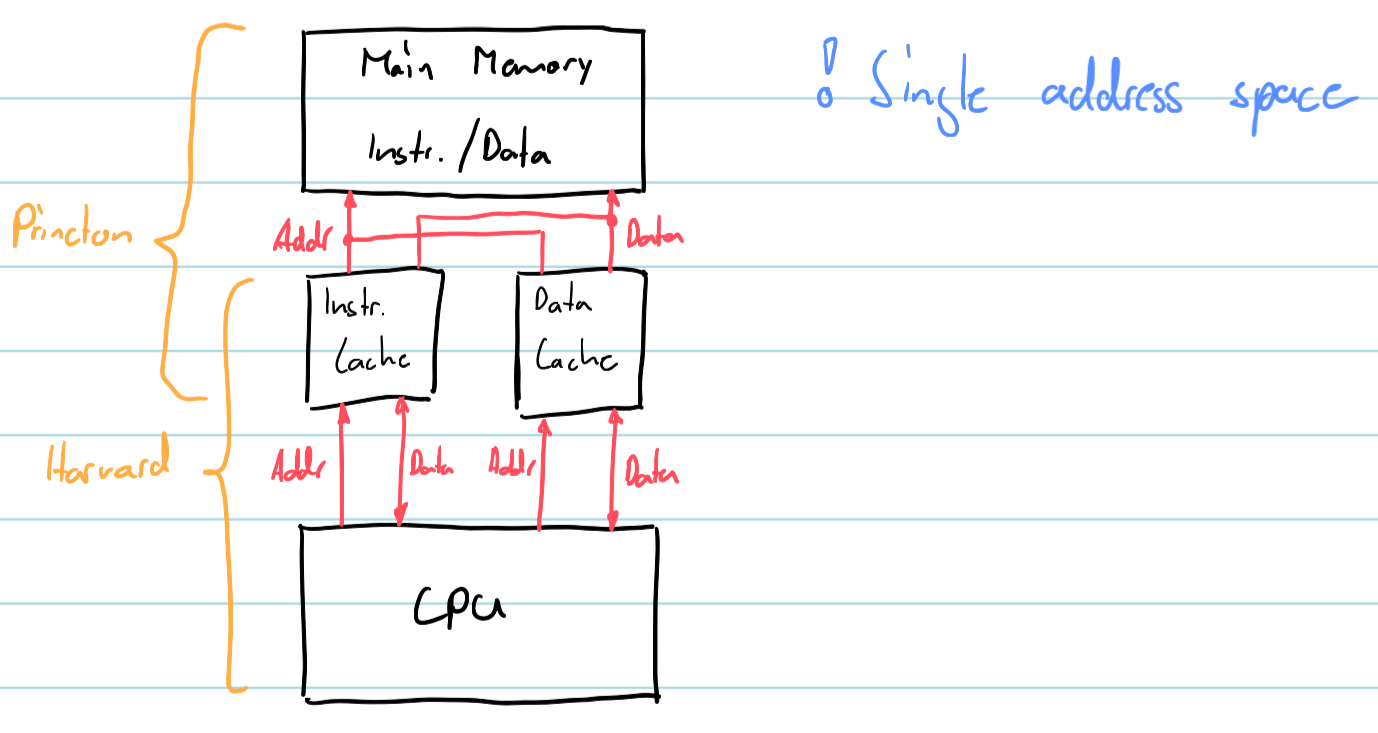 Main Memory
Instr./Data
! Single address space
Princton
Addr
Data
Instr.
Cache
Data
Cache
Harvard
Addr
Data
Addr
Data
CPU